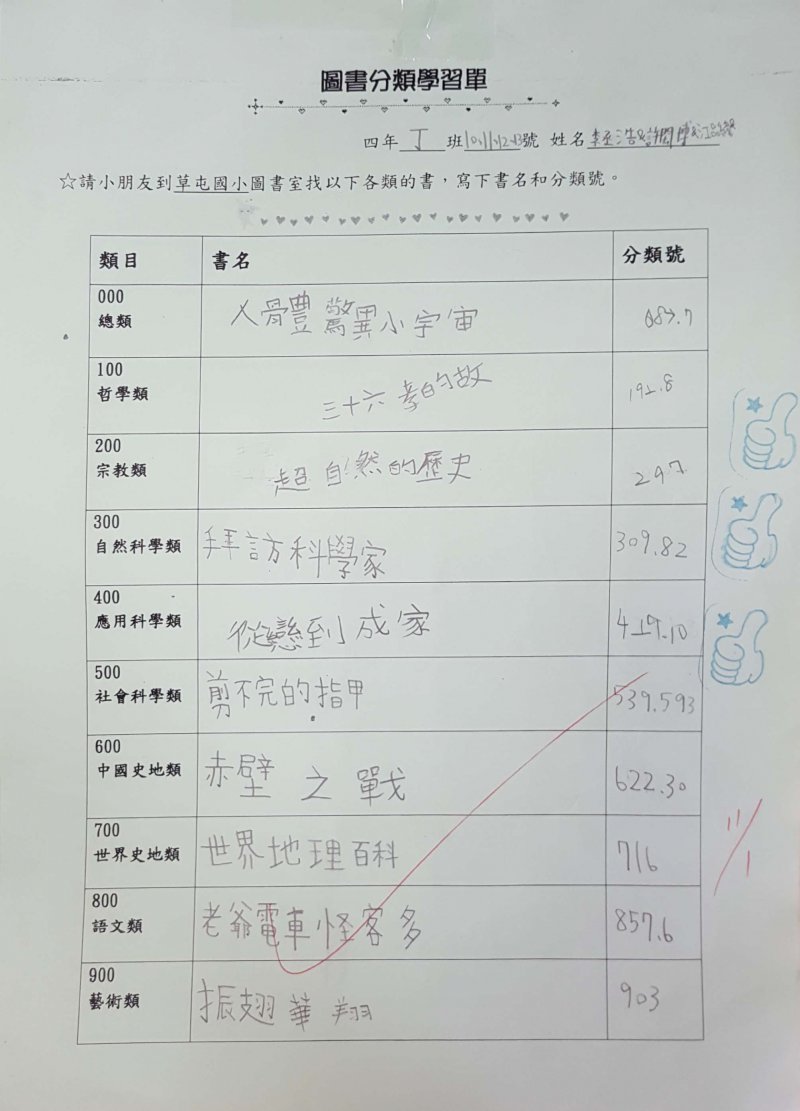 圖書分類學習單
四年 丁 班 10、11、12、13號 姓名
☆請小朋友到草屯國小圖書室找以下各類的書，寫下書名和分類號。
類目 書名 分類號
000
總類 人骨豐驚異小宇宙 087.7
100
哲學類 三十六孝的故 192.8
200
宗教類 超自然的歷史 297
300
自然科學類 拜訪科學家 309.82
400
應用科學類 從戀到成家 419.10
500
社會科學類 剪不完的指甲 539.593
600
中國史地類 赤壁之戰 622.30
700
世界史地類 世界地理百科 716
800
語文類 老爺電車怪客多 857.6
900
藝術類 振翅華翔 903
11/1